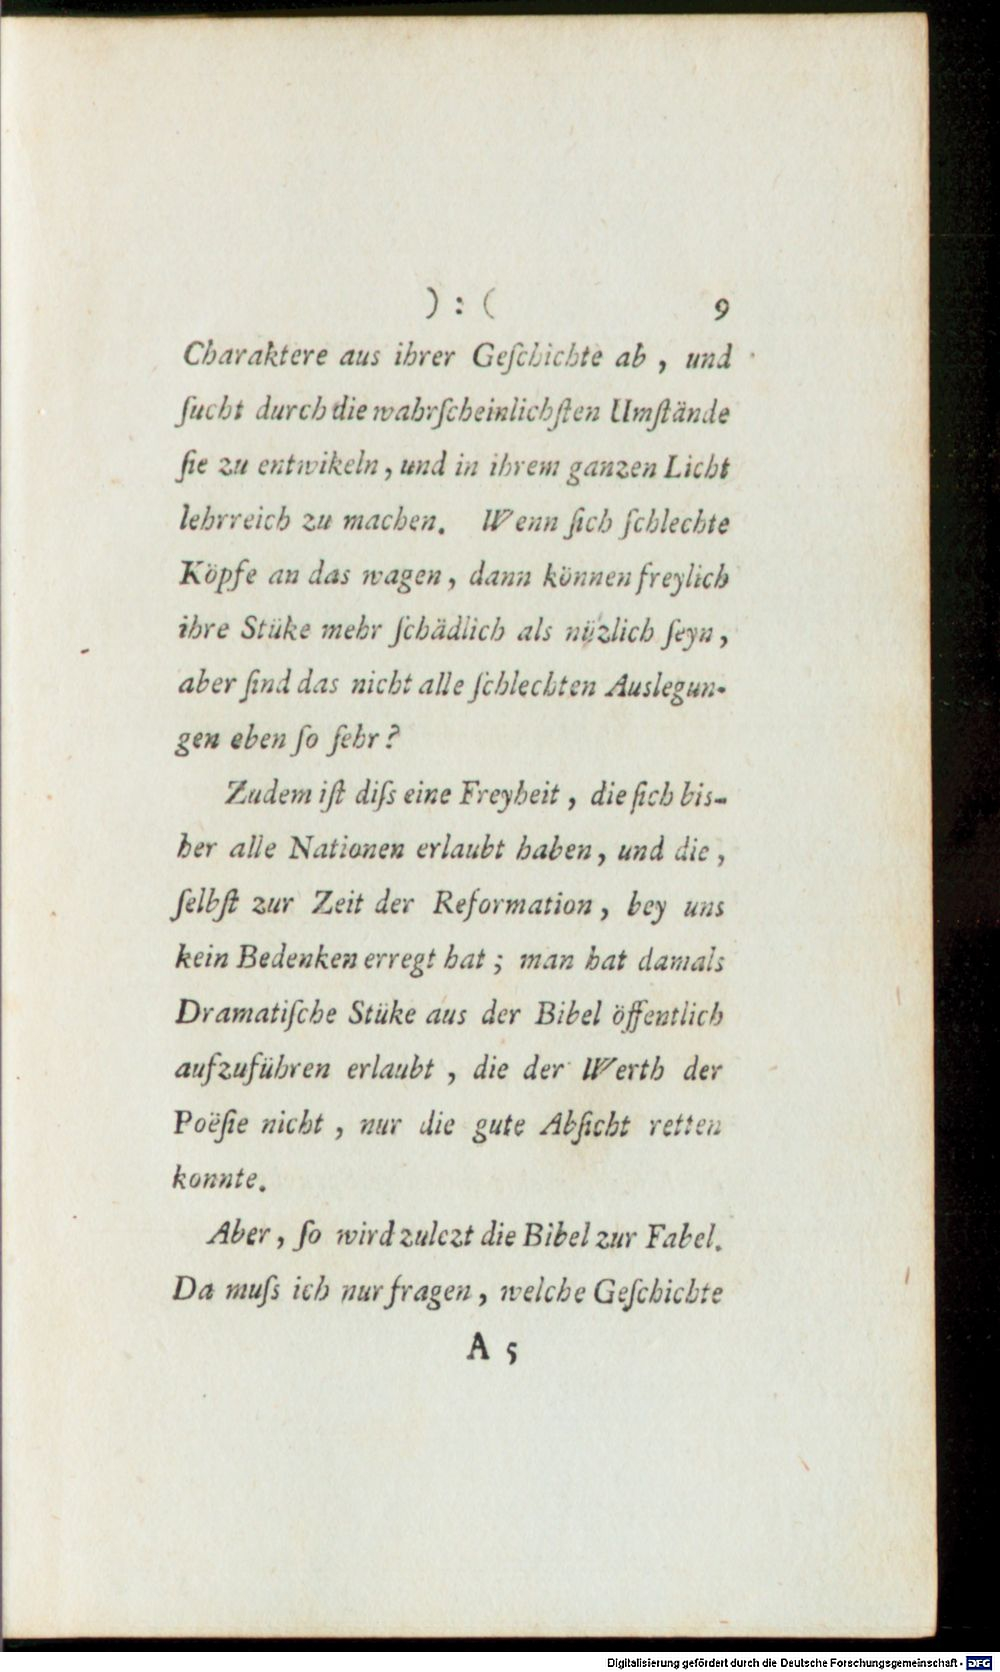 ) : ( 9
Charaktere aus ihrer Geſchichte ab , und
ſucht durch die wahrſcheinlichſten Umſtände
ſie zu entwikeln , und in ihrem ganzen Licht
lehrreich zu machen. Wenn ſich ſchlechte
Köpfe an das wagen , dann können freylich
ihre Stüke mehr ſchädlich als nüzlich ſeyn ,
aber ſind das nicht alle ſchlechten Auslegun-
gen eben ſo ſehr ?
Zudem iſt diſs eine Freyheit , die ſich bis-
her alle Nationen erlaubt haben , und die ,
ſelbſt zur Zeit der Reformation , bey uns
kein Bedenken erregt hat ; man hat damals
Dramatiſche Stüke aus der Bibel öffentlich
aufzuführen erlaubt , die der Werth der
Poëſie nicht , nur die gute Abſicht retten
konnte.
Aber , ſo wird zulezt die Bibel zur Fabel.
Da muſs ich nur fragen , welche Geſchichte
A 5
Digitalisierung gefördert durch die Deutsche Forschungsgemeinschaft - DFG